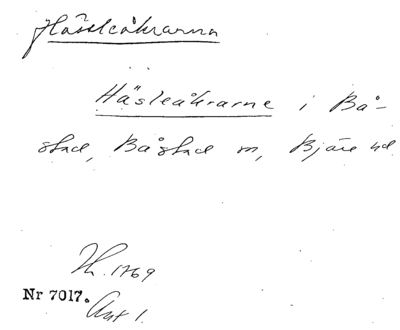 Hässleåkrarna
Häsleåkrarne i Bå-
stad, Båstad sn, Bjäre hd
Th. 1769
Nr 7017.
Akt 1.